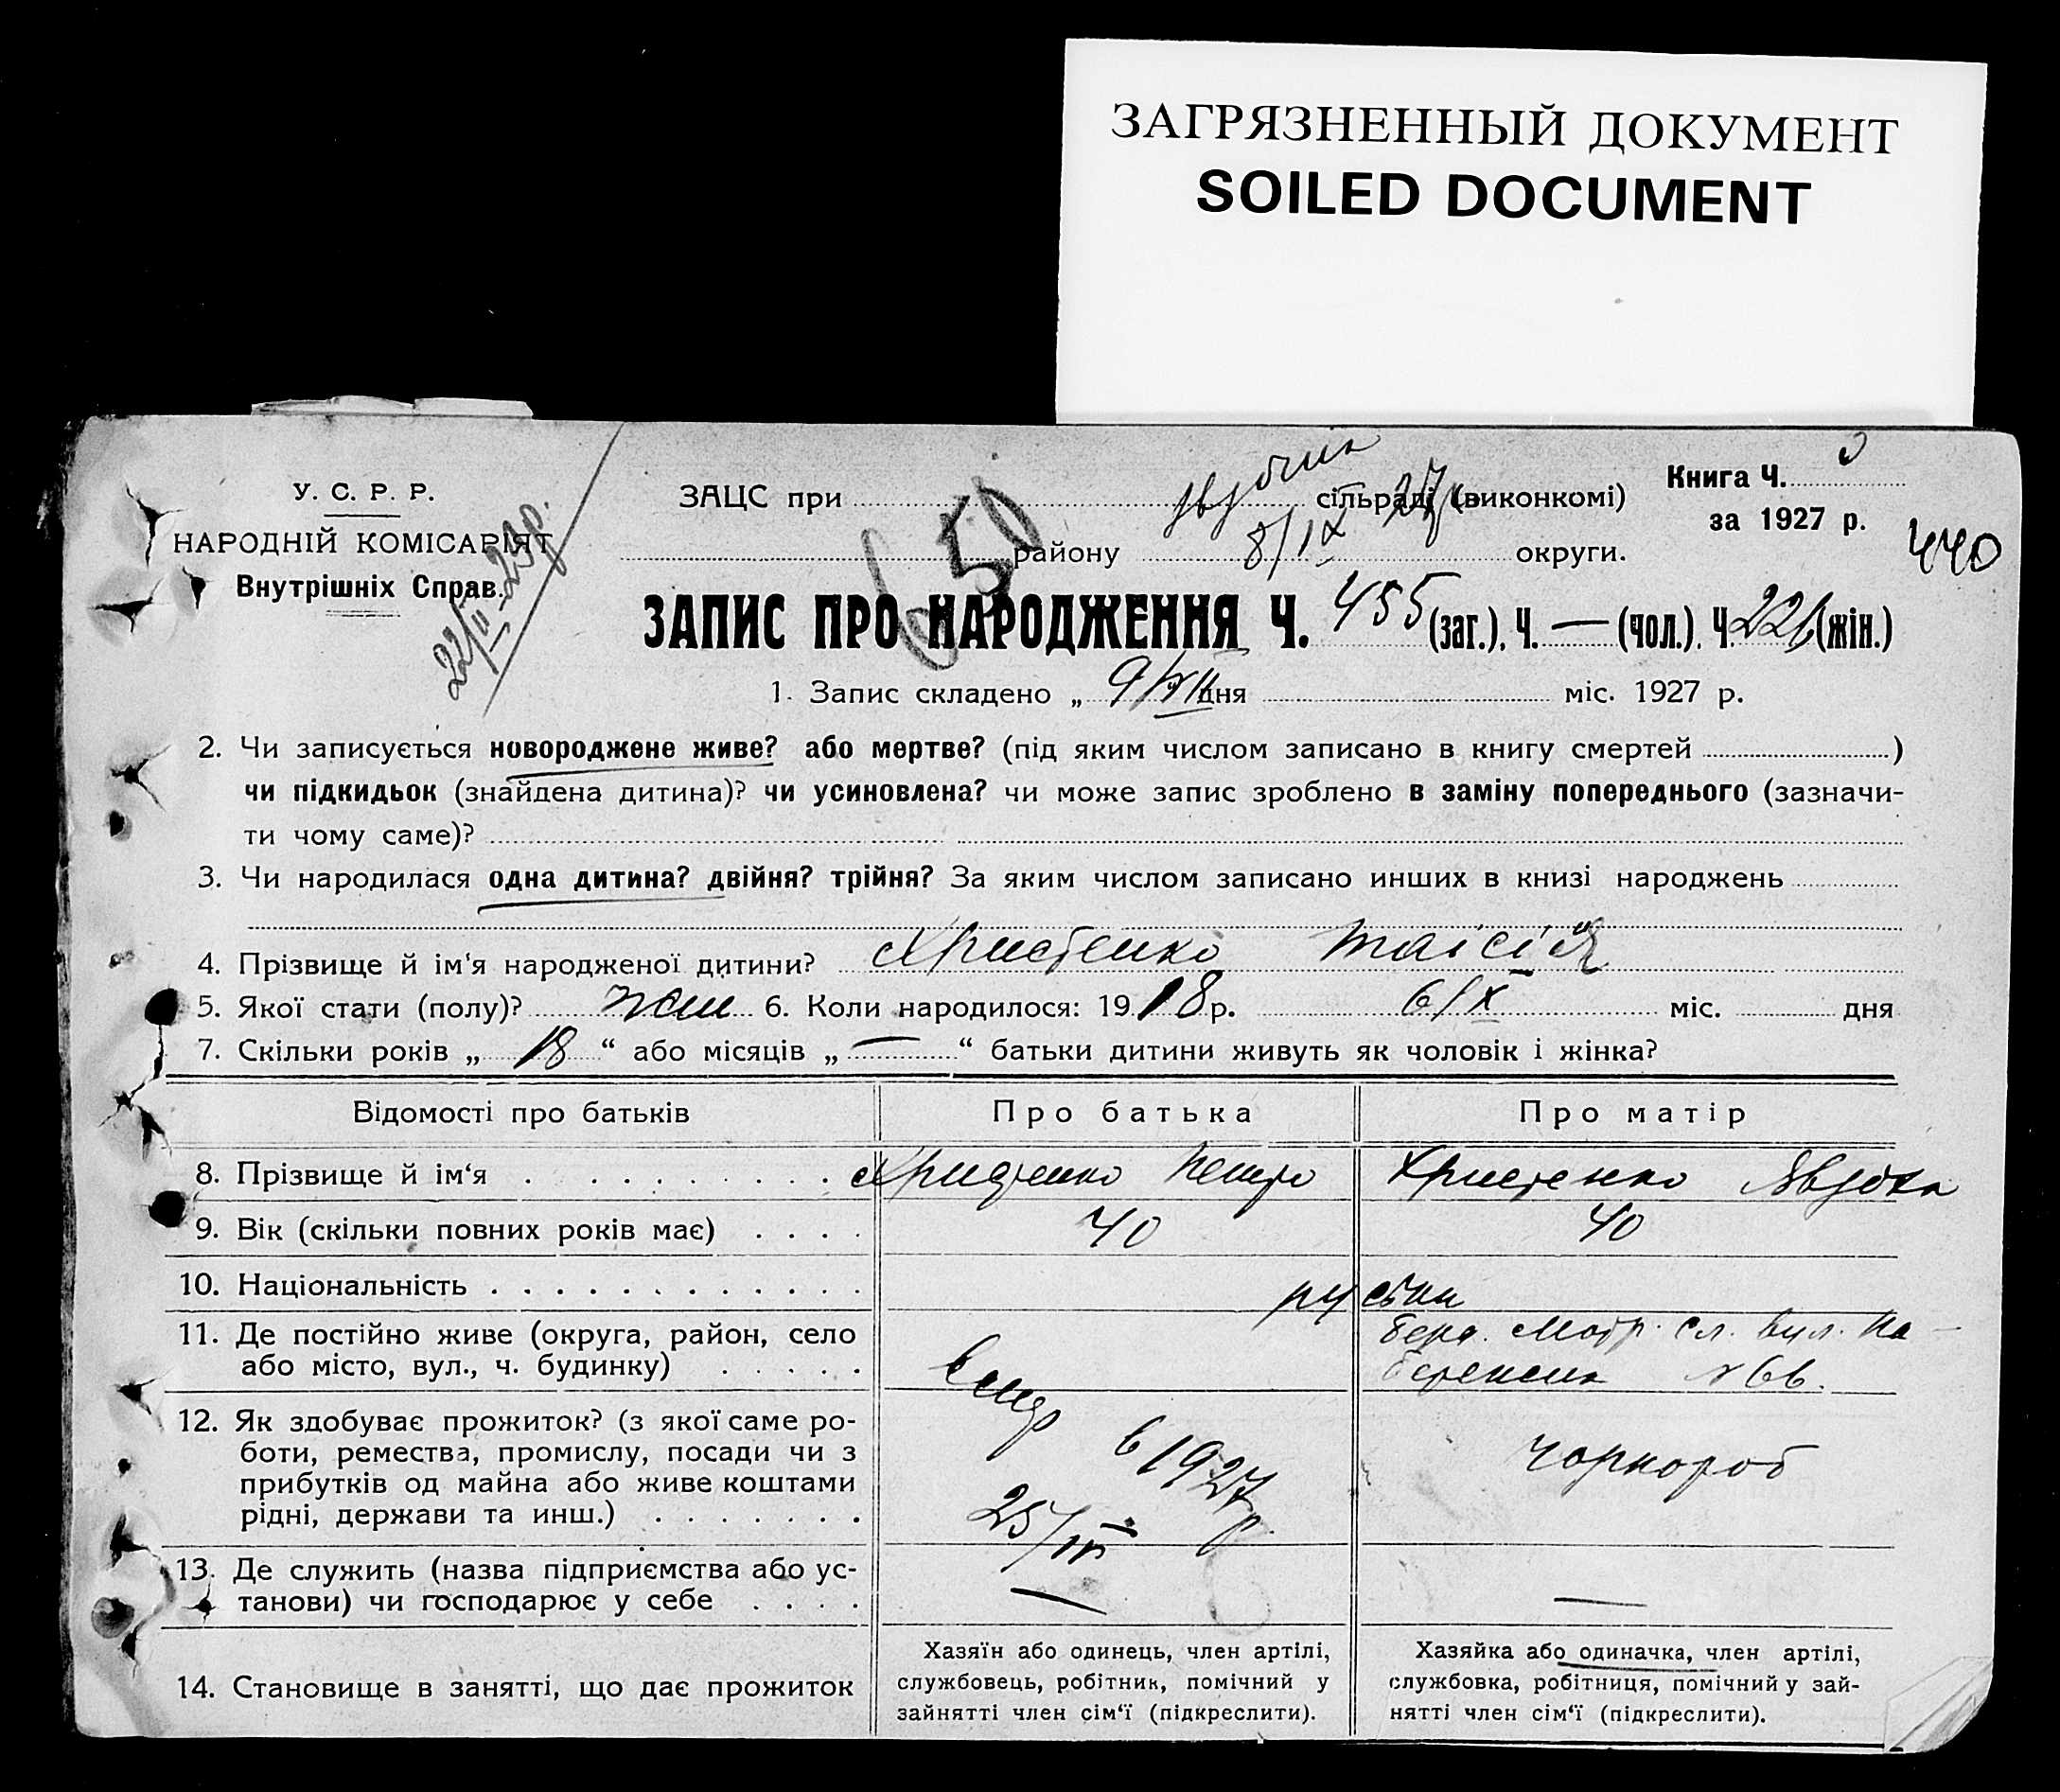 ЗАГРЯЗНЕННЫЙ ДОКУМЕНТ
SOILED DOCUMENT
У. С. Р. Р.
НАРОДНІЙ КОМІСАРІЯТ
Внутрішніх Справ.
22/III-29р.
650
ЗАЦС при сільраді (виконкомі)
району 8/IX 27р. округи.
Книга Ч.
за 1927 р.
440
ЗАПИС ПРО НАРОДЖЕННЯ Ч. 455 (заг.), Ч. — (чол.), Ч. 226 (жін.)
1. Запис складено „ 9/VII дня міс. 1927 р.
2. Чи записується новороджене живе? або мертве? (під яким числом записано в книгу смертей )
чи підкидьок (знайдена дитина)? чи усиновлена? чи може запис зроблено в заміну попереднього (зазначи-
ти чому саме)?
3. Чи народилася одна дитина? двійня? трійня? За яким числом записано инших в книзі народжень
4. Прізвище й ім'я народженої дитини? Христенко Таісія
5. Якої стати (полу)? жін 6. Коли народилося: 1918 р. 6/X міс. дня
7. Скільки років „ 18 “ або місяців „ — “ батьки дитини живуть як чоловік і жінка?
Відомості про батьків Про батька Про матір
8. Прізвище й ім'я Христенко Петро Христенко Явдоха
9. Вік (скільки повних років має) 40 40
10. Національність руські
11. Де постійно живе (округа, район, село
або місто, вул., ч. будинку)
Берд. Матр. сл. вул. На-
бережна № 66.
12. Як здобуває прожиток? (з якої саме ро-
боти, ремества, промислу, посади чи з
прибутків од майна або живе коштами
рідні, держави та инш.)
в 1927 р.
25/IV
чорнороб
13. Де служить (назва підприємства або ус-
танови) чи господарює у себе — —
14. Становище в занятті, що дає прожиток
Хазяїн або одинець, член артілі,
службовець, робітник, помічний у
зайнятті член сім'ї (підкреслити).
Хазяйка або одиначка, член артілі,
службовка, робітниця, помічний у зай-
нятті член сім'ї (підкреслити).